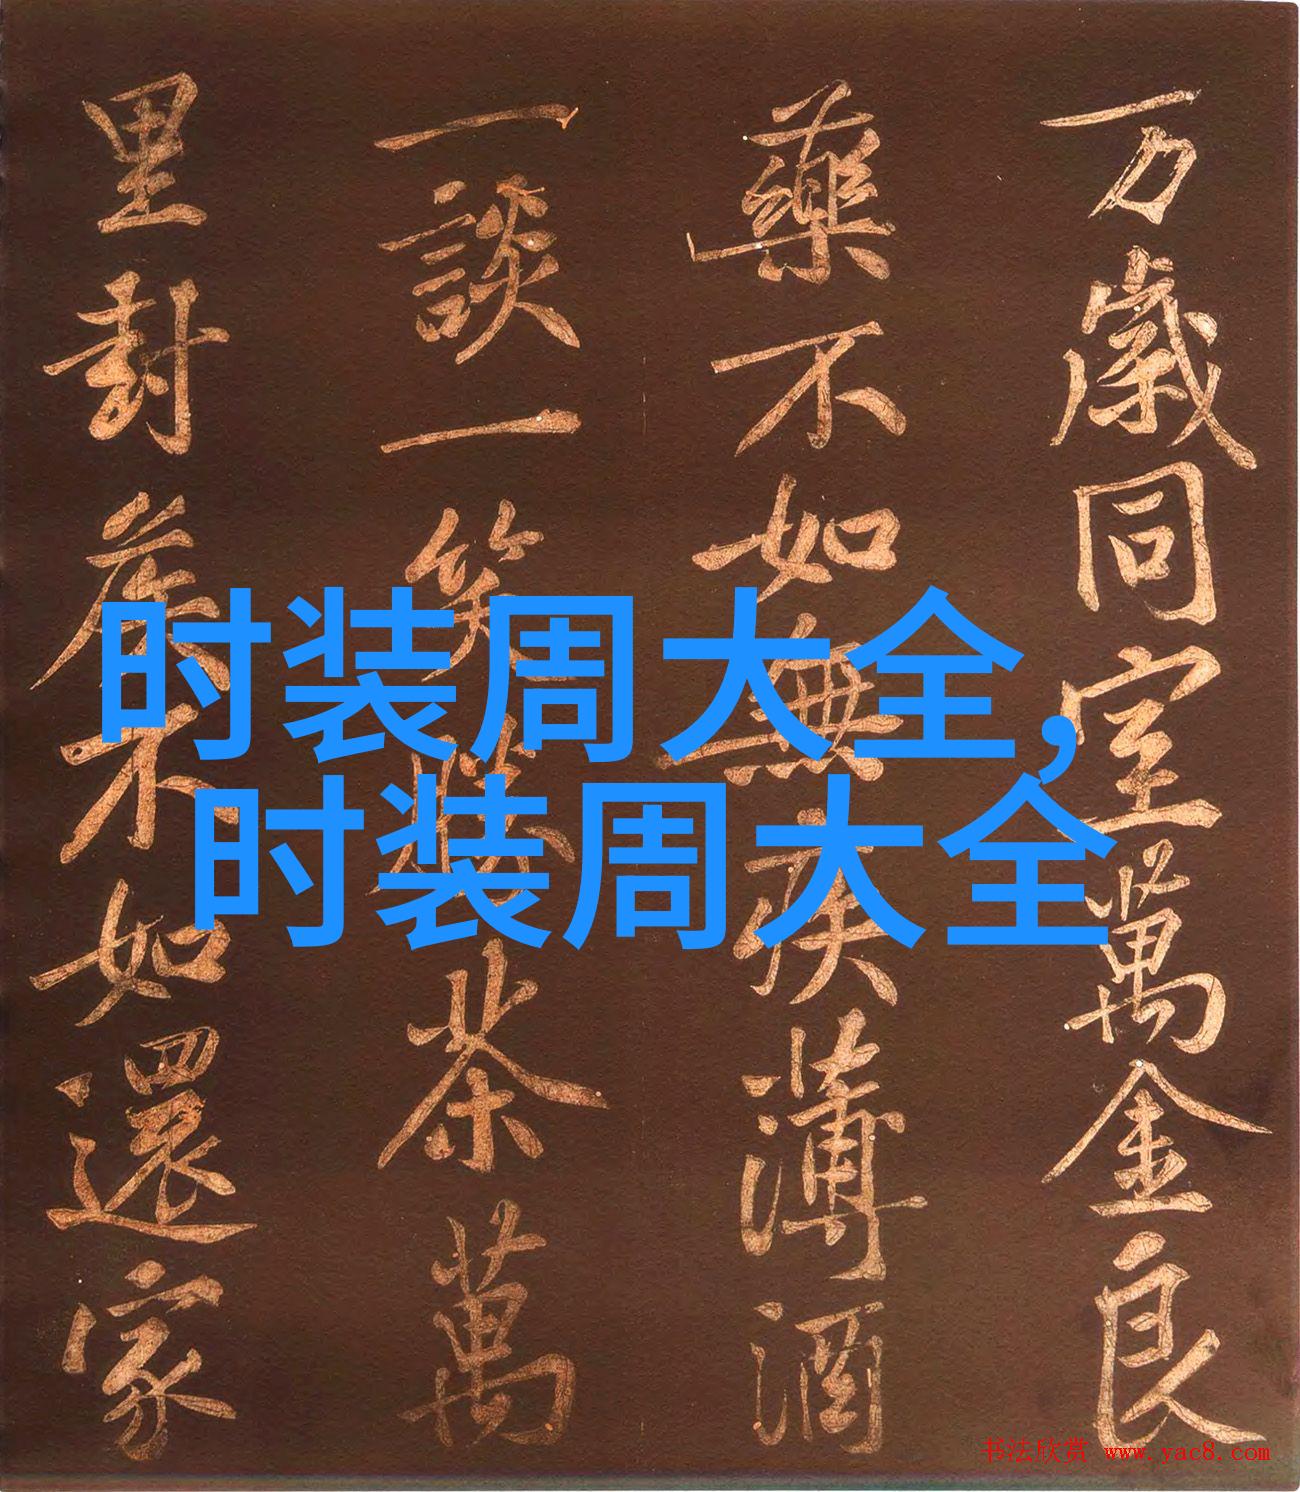 万歲同室萬金良
藥不如無疾薄酒
一談一笑勝茶萬
里封侯不如還家
时装周大全,
时装周大全
书法欣赏 www.yac8.com